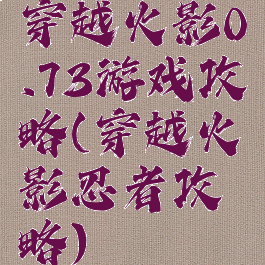 穿越火影0
.73游戏攻
略(穿越火
影忍者攻
略)